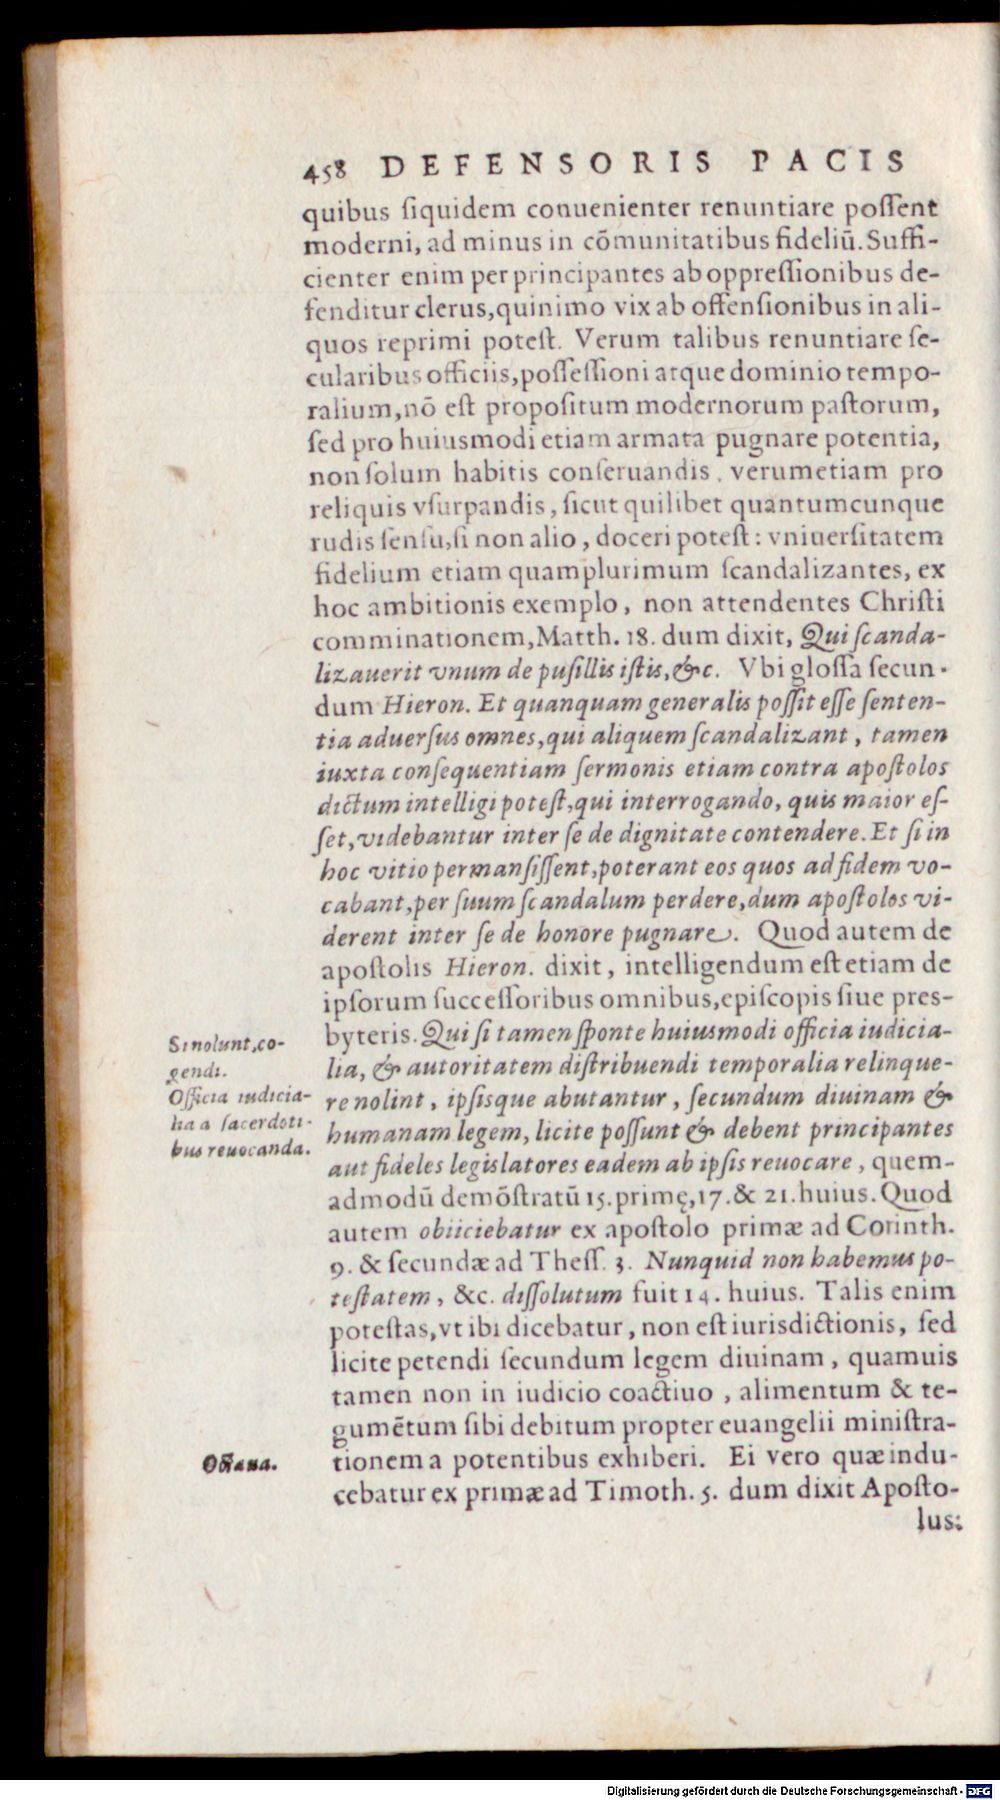 458 DEFENSORIS PACIS
quibus ſiquidem conuenienter renuntiare poſſent
moderni, ad minus in cōmunitatibus fideliū. Suffi-
cienter enim per principantes ab oppreſſionibus de-
fenditur clerus, quinimo vix ab offenſionibus in ali-
quos reprimi poteſt. Verum talibus renuntiare ſe-
cularibus officiis, poſſeſſioni atque dominio tempo-
ralium, nō eſt propoſitum modernorum paſtorum,
ſed pro huiusmodi etiam armata pugnare potentia,
non ſolum habitis conſeruandis, verumetiam pro
reliquis vſurpandis, ſicut quilibet quantumcunque
rudis ſenſu, ſi non alio, doceri poteſt: vniuerſitatem
fidelium etiam quamplurimum ſcandalizantes, ex
hoc ambitionis exemplo, non attendentes Chriſti
comminationem, Matth. 18. dum dixit, Qui ſcanda-
lizauerit vnum de puſillis iſtis, &c. Vbi gloſſa ſecun-
dum Hieron. Et quanquam generalis poſſit eſſe ſenten-
tia aduerſus omnes, qui aliquem ſcandalizant, tamen
iuxta conſequentiam ſermonis etiam contra apoſtolos
dictum intelligi poteſt, qui interrogando, quis maior eſ-
ſet, videbantur inter ſe de dignitate contendere. Et ſi in
hoc vitio permanſiſſent, poterant eos quos ad fidem vo-
cabant, per ſuum ſcandalum perdere, dum apoſtolos vi-
derent inter ſe de honore pugnare. Quod autem de
apoſtolis Hieron. dixit, intelligendum eſt etiam de
ipſorum ſucceſſoribus omnibus, epiſcopis ſiue pres-
byteris. Qui ſi tamen ſponte huiusmodi officia iudicia-
lia, & autoritatem diſtribuendi temporalia relinque-
re nolint, ipſisque abutantur, ſecundum diuinam &
humanam legem, licite poſſunt & debent principantes
aut fideles legislatores eadem ab ipſis reuocare, quem-
admodū demōſtratū 15. primę, 17. & 21. huius. Quod
autem obiiciebatur ex apoſtolo primæ ad Corinth.
9. & ſecundæ ad Theſſ. 3. Nunquid non habemus po-
teſtatem, &c. diſſolutum fuit 14. huius. Talis enim
poteſtas, vt ibi dicebatur, non eſt iurisdictionis, ſed
licite petendi ſecundum legem diuinam, quamuis
tamen non in iudicio coactiuo, alimentum & te-
gumētum ſibi debitum propter euangelii miniſtra-
tionem a potentibus exhiberi. Ei vero quæ indu-
cebatur ex primæ ad Timoth. 5. dum dixit Apoſto-
lus:
Si nolunt, co-
gendi.
Officia iudicia-
lia a ſacerdoti-
bus reuocanda.
Digitalisierung gefördert durch die Deutsche Forschungsgemeinschaft - DFG